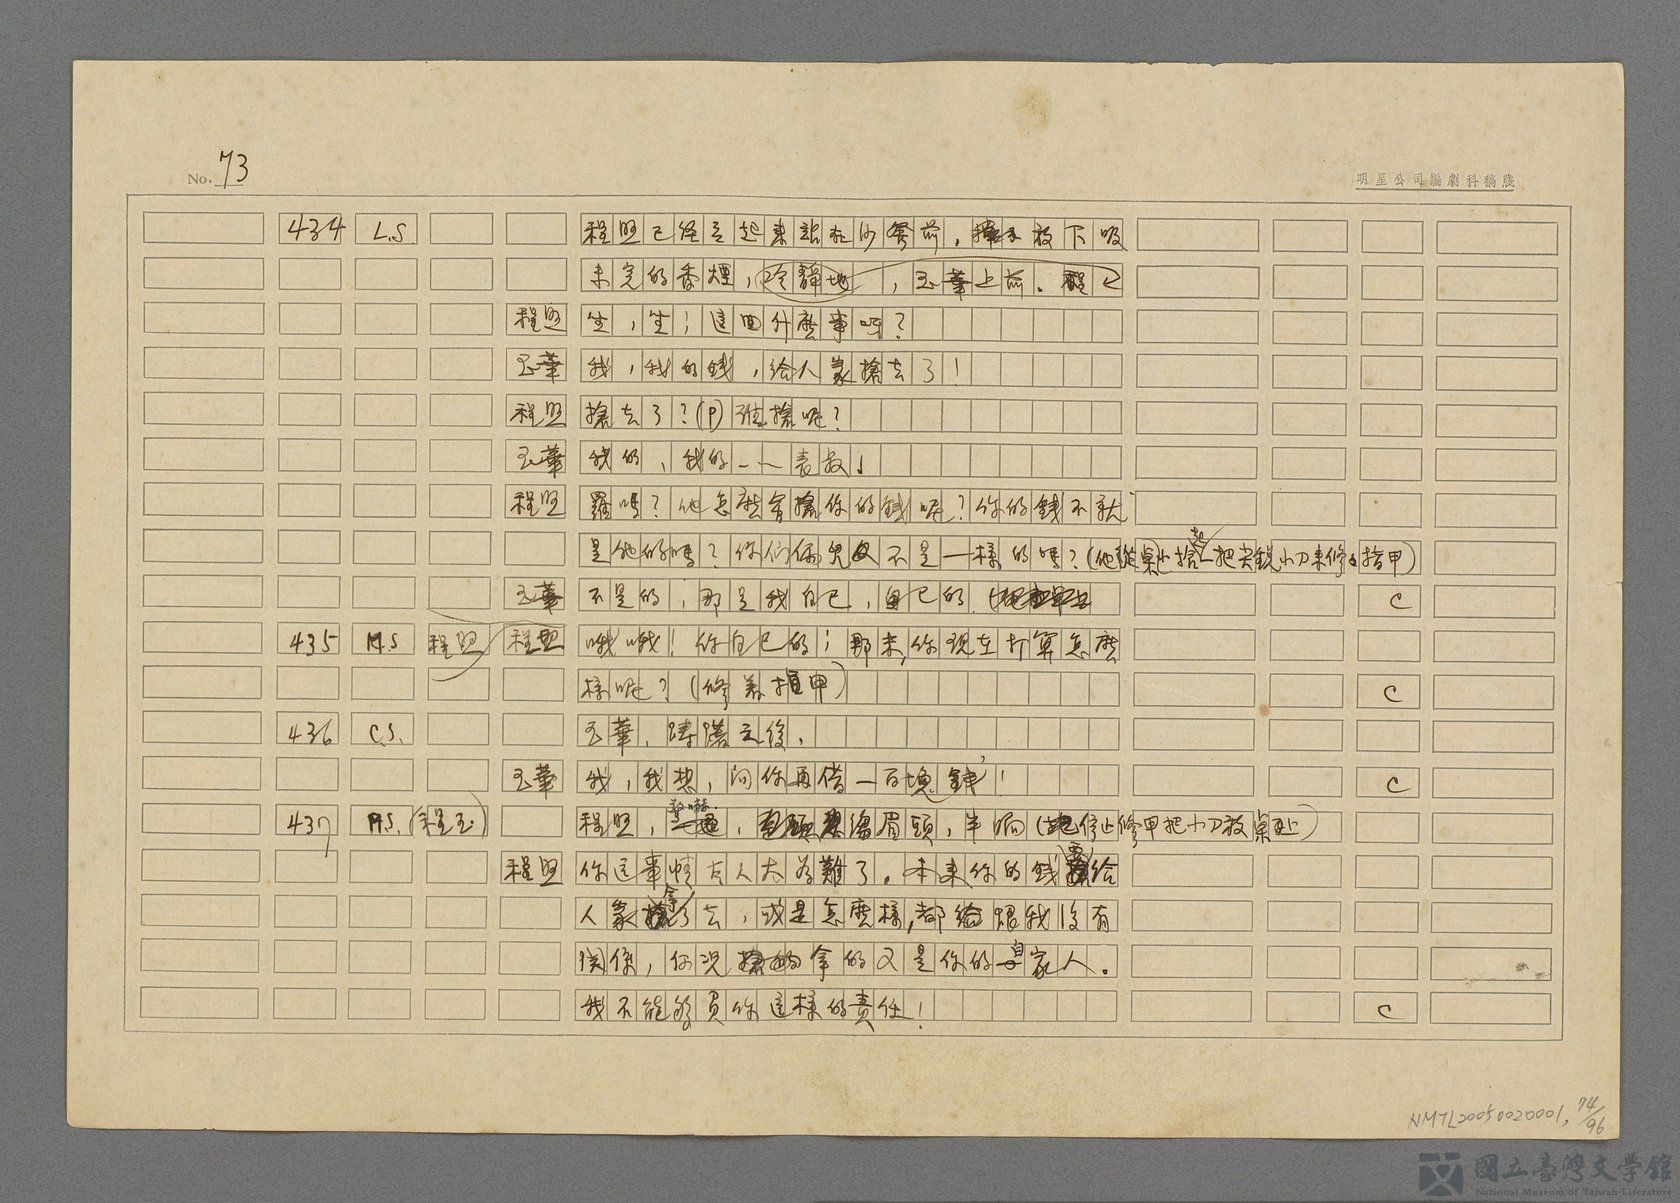 No. 73
明星公司編劇科稿牋
434 L.S. 程照已经立起来站在沙發前,放下吸
未完的香煙,冷靜地,玉華上前。
程照 坐,坐;這回什麽事呀?
玉華 我,我的錢,给人家搶去了!
程照 搶去了?(P)谁搶呢?
玉華 我的,我的……表叔!
程照 羅嗎?他怎麽會搶你的錢呢?你的錢不就
是他的嗎?你们倆兒不是一樣的嗎?(他從桌上拾起一把尖銳小刀来修指甲)
玉華 不是的,那是我自已,自已的 C
435 M.S. 程照 程照 哦哦!你自已的;那末,你現在打算怎麽
樣呢?(修着指甲) C
436 C.S. 玉華,躊躇之後,
玉華 我,我想,问你再借一百塊錢! C
437 M.S.(程玉) 程照,,縐眉頭,半晌(他停止修甲把小刀放桌上)
程照 你這事情太人太为難了。本来你的錢要给
人家拿了去,或是怎麽樣,都跟我没有
関係,何况拿的又是你的自家人。
我不能够負你這樣的責任! C
NMTL20050020001, 74/96
國立臺灣文學館
National Museum of Taiwan Literature